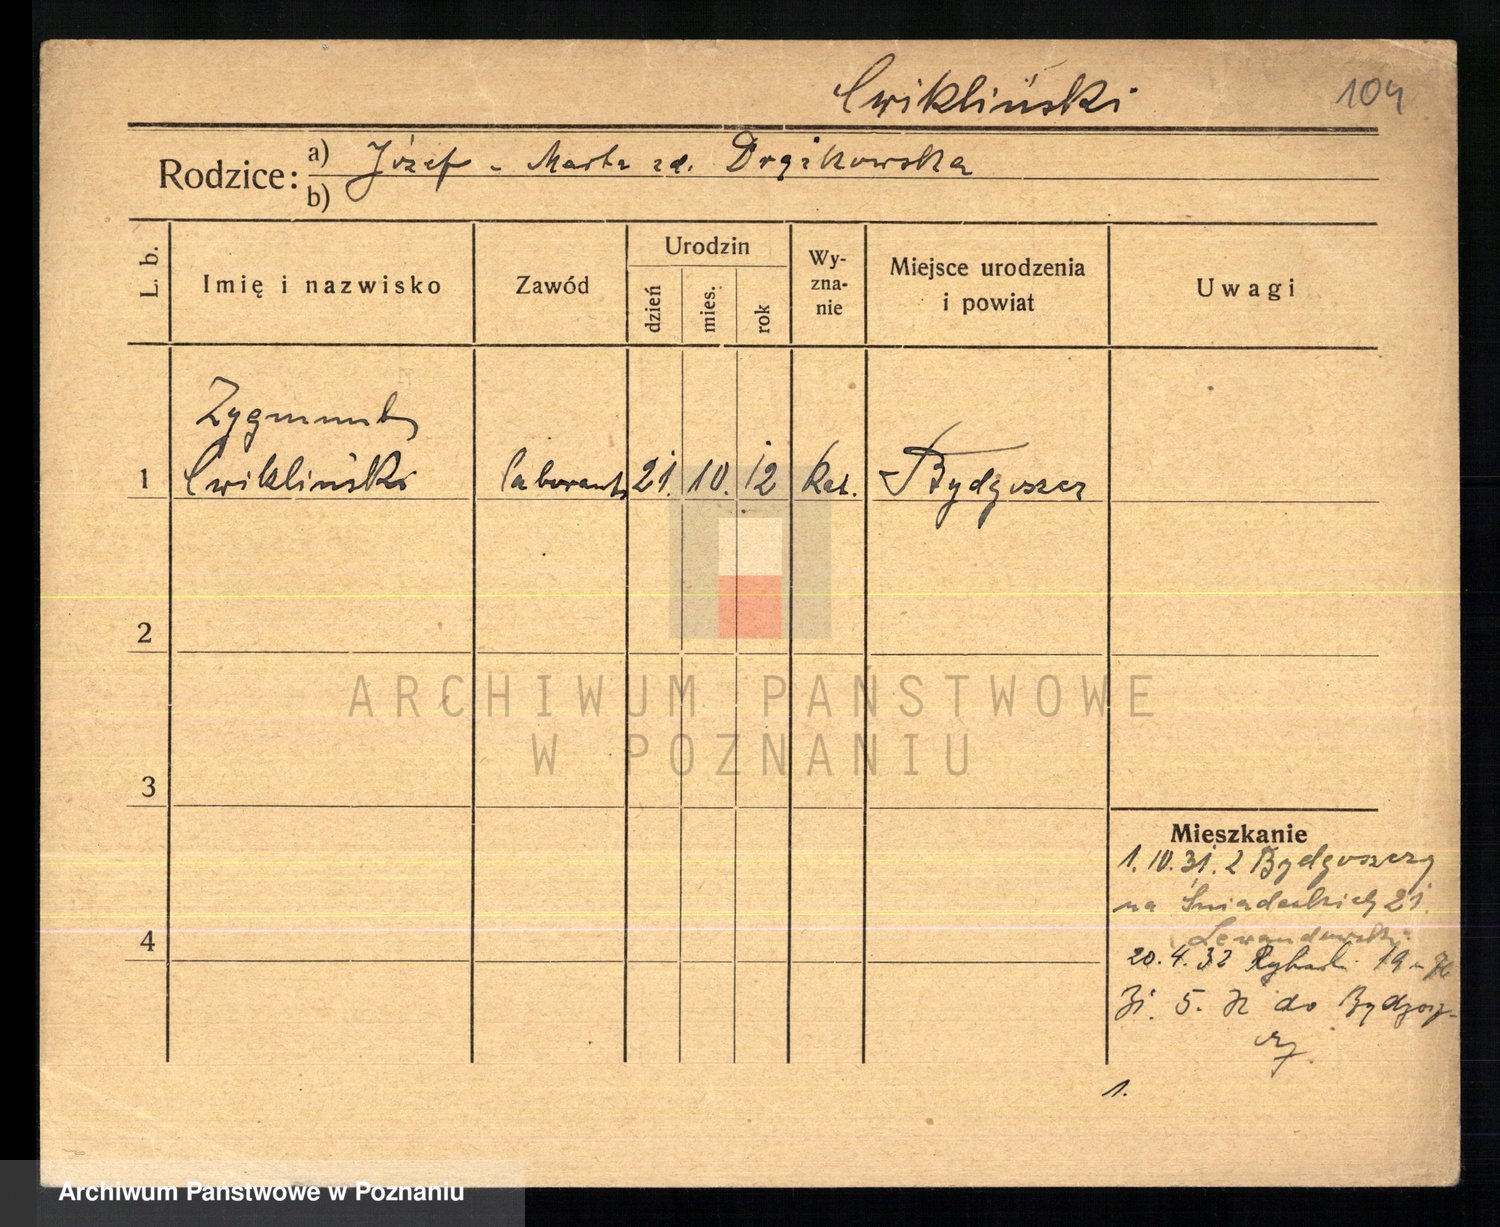 Cwikliński
104
Rodzice:
a) Józef - Marta zd. Drążkowska
b)
L. b.
Imię i nazwisko
Zawód
Urodzin
dzień
mies.
rok
Wy-
zna-
nie
Miejsce urodzenia
i powiat
Uwagi
Zygmunt
1 Cwikliński laborant 21. 10. 12 kat. Bydgoszcz
2
3
4
ARCHIWUM PAŃSTWOWE
W POZNANIU
Mieszkanie
1. 10. 31. z Bydgoszczy
na Śniadeckich 21.
Lewandowski
20. 4. 32 19
31. 5. 32 do Bydgosz-
czy.
1.
Archiwum Państwowe w Poznaniu